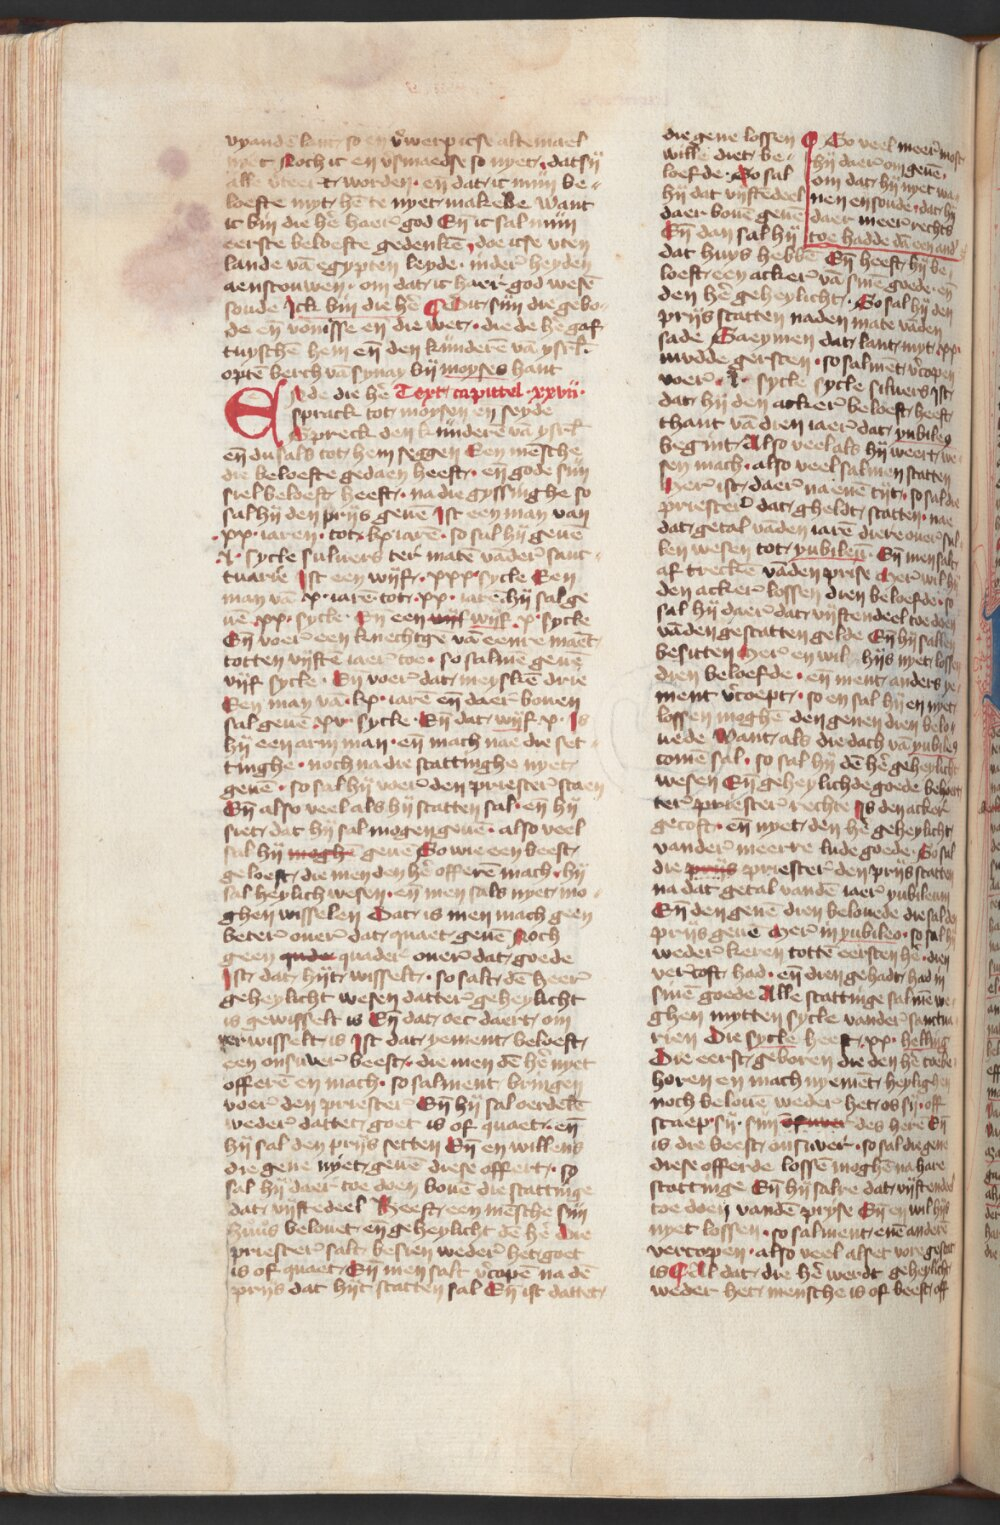 vyandē lant so en v̓werp icse altemael
niet Noch ic en v̓smaedse so nyet datsij
alle v̓teert worden · en̄ dat ic mijn be-
loefte myt hē te nyet makede Want
ic bin die hē haer god En̄ ic sal mijn
eerste beloefte gedenkē doe icse vten
lande vā egypten leyde · inder heyden
aenscouwen · om dat ic haer god wesē
soude Ick bin die hē Dit sijn die gebo-
de en̄ vonisse en̄ die wet · die de hē gaf
tuysschē hem en̄ den kinderē vā ysrl
optē berch vā synay bij moyses hant
Ende die hē Text capittel · xxvij ·
sprack tot moysen en̄ seyde
Spreck den kinderē vā ysrl
en̄ du sals tot hem seggen Een mēsche
die beloefte gedaen heeft · en̄ gode sijn
siel beloeft heeft · na die gyssinghe so
sal hij den prijs geuē Ist een man van
· xx · iaren · tot · lx · iarē · so sal hij geuē
· l · sycle siluers ter matē vāder sanc-
tuarie Ist een wijf · xxx · sycle Een
man vā · v · iarē · tot · xx · iarē hij sal ge
uē · xx · sycle · En̄ een wijf wijf · x · sycle
En̄ voer een knechtge vā eenre maēt
totten vijftē iaer toe · so salmē geuē
vijf sycle · En̄ voer dat meyskē drie
Een man vā · lx · iarē en̄ daer bouen
sal geuē · xv · sycle · En̄ dat wijf · x · Is
hij een arm man · en̄ mach nae die set-
tinghe · noch na die scattinghe nyet
geuē · so sal hij voer den priester staen
En̄ also veel als hij scatten sal · en̄ hij
siet dat hij sal mogen geuē · also veel
sal hij moghē geuē So wie een beest
geloeft die men den hē offerē mach · hij
sal heylich wesen · en̄ men sals nyet mo-
ghen wisselen Dat is men mach geen
beter ouer dat quaet geuē Noch
geen quder quader ouer dat goede
Ist dat hijt wisselt · so salt dē heer
geheylicht wesen datter geheylicht
is gewisselt is En̄ dat oec daert om
verwisselt is Ist dat yement beloeft
een onsuuer beest · die men dē hē nyet
offerē en mach · so salment bringen
voer den priester En̄ hij sal oerdelē
weder dattet goet is of quaet · en̄
hij sal den prijs setten En̄ en wil ens
die gene nyet geuē diese offert · so
sal hij daer toe doen bouē die scattinge
dat vijftedeel Heeft een mēsche sijn
huus belouet en̄ geheylicht dē hē Die
priester salt besien weder het goet
is of quaet En̄ men salt v̓copē na dē
prijs dat hijt scatten sal En̄ ist dattet
die gene lossen
wille diet be-
loefde · So sal
hij dat vijftedeel
daer bouē geuē
En̄ dan sal hij
So veel meer most
hij daer om geuē
om dat hij nyet wa-
nen en soude · dat hij
daer meer rechts
toe hadde dā een and
dat huys hebbē En̄ heeft hij be
loeft een acker vā sinē goede · en̄
den hē geheylicht · So sal hij den
prijs scatten na den mate vāden
sade Saeymen dat lant myt xxx
mudde gersten · so salmēt v̓copen
voer · l · sycle sycle siluers Ist
dat hij den acker beloeft heeft
thant vā dien iaer dat yubileus
begint Also veel als hij weert we
sen mach · also veel salmen scatten
Mer ist daer na enē tijt · so sal die
priester dat gheldt scatten · nae
dat getal vāden iarē diere ouer sul
len wesen tot yubileū · En̄ men salt
af treckē vāden prise Mer wil hij
den acker lossen dien beloefde · so
sal hij daer dat vijftendeel toe doen
vāden gescatten gelde En̄ hij sallen
besitten Mer en wil hijs nyet lossen
dien beloefde · en̄ ment anders ye-
ment v̓coept · so en sal hij en nyet
lossen moghē den genen dien belo-
uede Want als die dach vā yubileus
comē sal · so sal hij dē hē geheylicht
wesen En̄ geheylichde goede behoert
ter priester rechte Is den acker
gecoft · en̄ nyet den hē geheylicht
vander meerre lude goede · So sal
die prijs priester den prijs scatten
na dat getal vandē iaer yubileum
En̄ den genē dien belouede die sal den
prijs geuē Mer in yubileo · so sal hij
weder keren tottē eersten hē · dien
vercoft had · en̄ dien gehadt had in
sinē goede Alle scattinge salmē we
ghen mytten sycle vander sanctua
rien Die sycle heeft · xx · helling
Die eerst geboren die den hē toebe
horen en mach nyemēt heylighen
noch belouē weder het os sij · off
scaep sij · sijn ofuuer des here En̄
is die beest onsuuer · so sal die gene
diese offerde lossē moghē na hare
scattinge En̄ hij salre dat vijftendeel
toe doen vandē pryse En̄ en wil hijs
nyet lossen · so salment enē anderē
vercopen · also veel alset vore gescat
is Al dat die hē werdt geheylicht
weder het mensche is of beest off